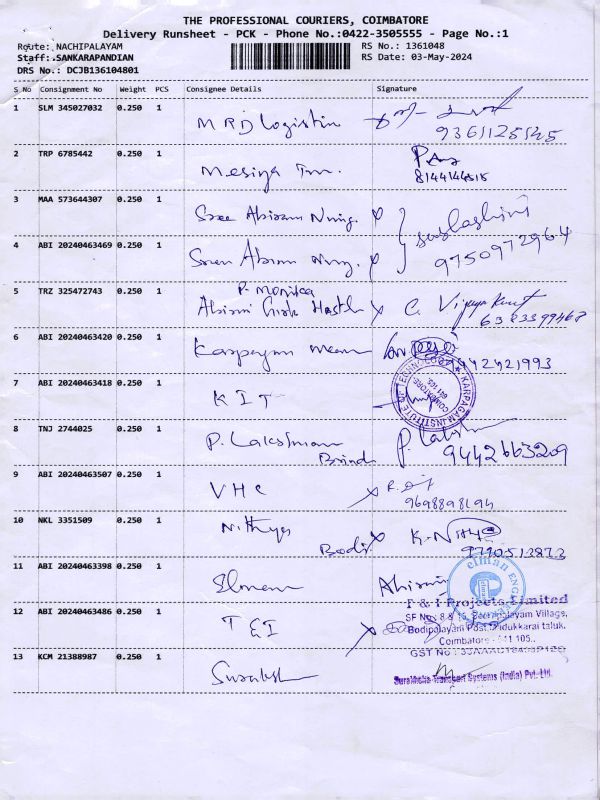 THE PROFESSIONAL COURIERS, COIMBATORE
Delivery Runsheet - PCK - Phone No.:0422-3505555 - Page No.:1
Route: NACHIPALAYAM RS No.: 1361048
Staff: SANKARAPANDIAN RS Date: 03-May-2024
DRS No.: DCJB136104801
S No Consignment No Weight PCS Consignee Details Signature
1 SLM 345027032 0.250 1 MRD Logistin
9361125545
2 TRP 6785442 0.250 1 Mesiya Tm.
8144144515
3 MAA 573644307 0.250 1 Sree Abiram Nurg.
4 ABI 20240463469 0.250 1 Sree Abiram Nurg.
9750972964
5 TRZ 325472743 0.250 1 P. Monika
Abirami Girls Hostel C. Vijaya
6 ABI 20240463420 0.250 1 Karpagam
9942421993
7 ABI 20240463418 0.250 1 KIT
KARPAGAM INSTITUTE OF TECHNOLOGY
COIMBATORE
641 105
8 TNJ 2744025 0.250 1 P. Lakshman
Brinda 9442663209
9 ABI 20240463507 0.250 1 VHC
9698898194
10 NKL 3351509 0.250 1 Nithya K. Nithya
Bodi. 9790513873
11 ABI 20240463398 0.250 1 Elman Abirami
12 ABI 20240463486 0.250 1 TEI
T & I Projects Limited
Bodipalayam Post, Madukkarai taluk,
Coimbatore - 641 105..
13 KCM 21388987 0.250 1 Suraksha
Suraksha Transport Systems (India) Pvt. Ltd.